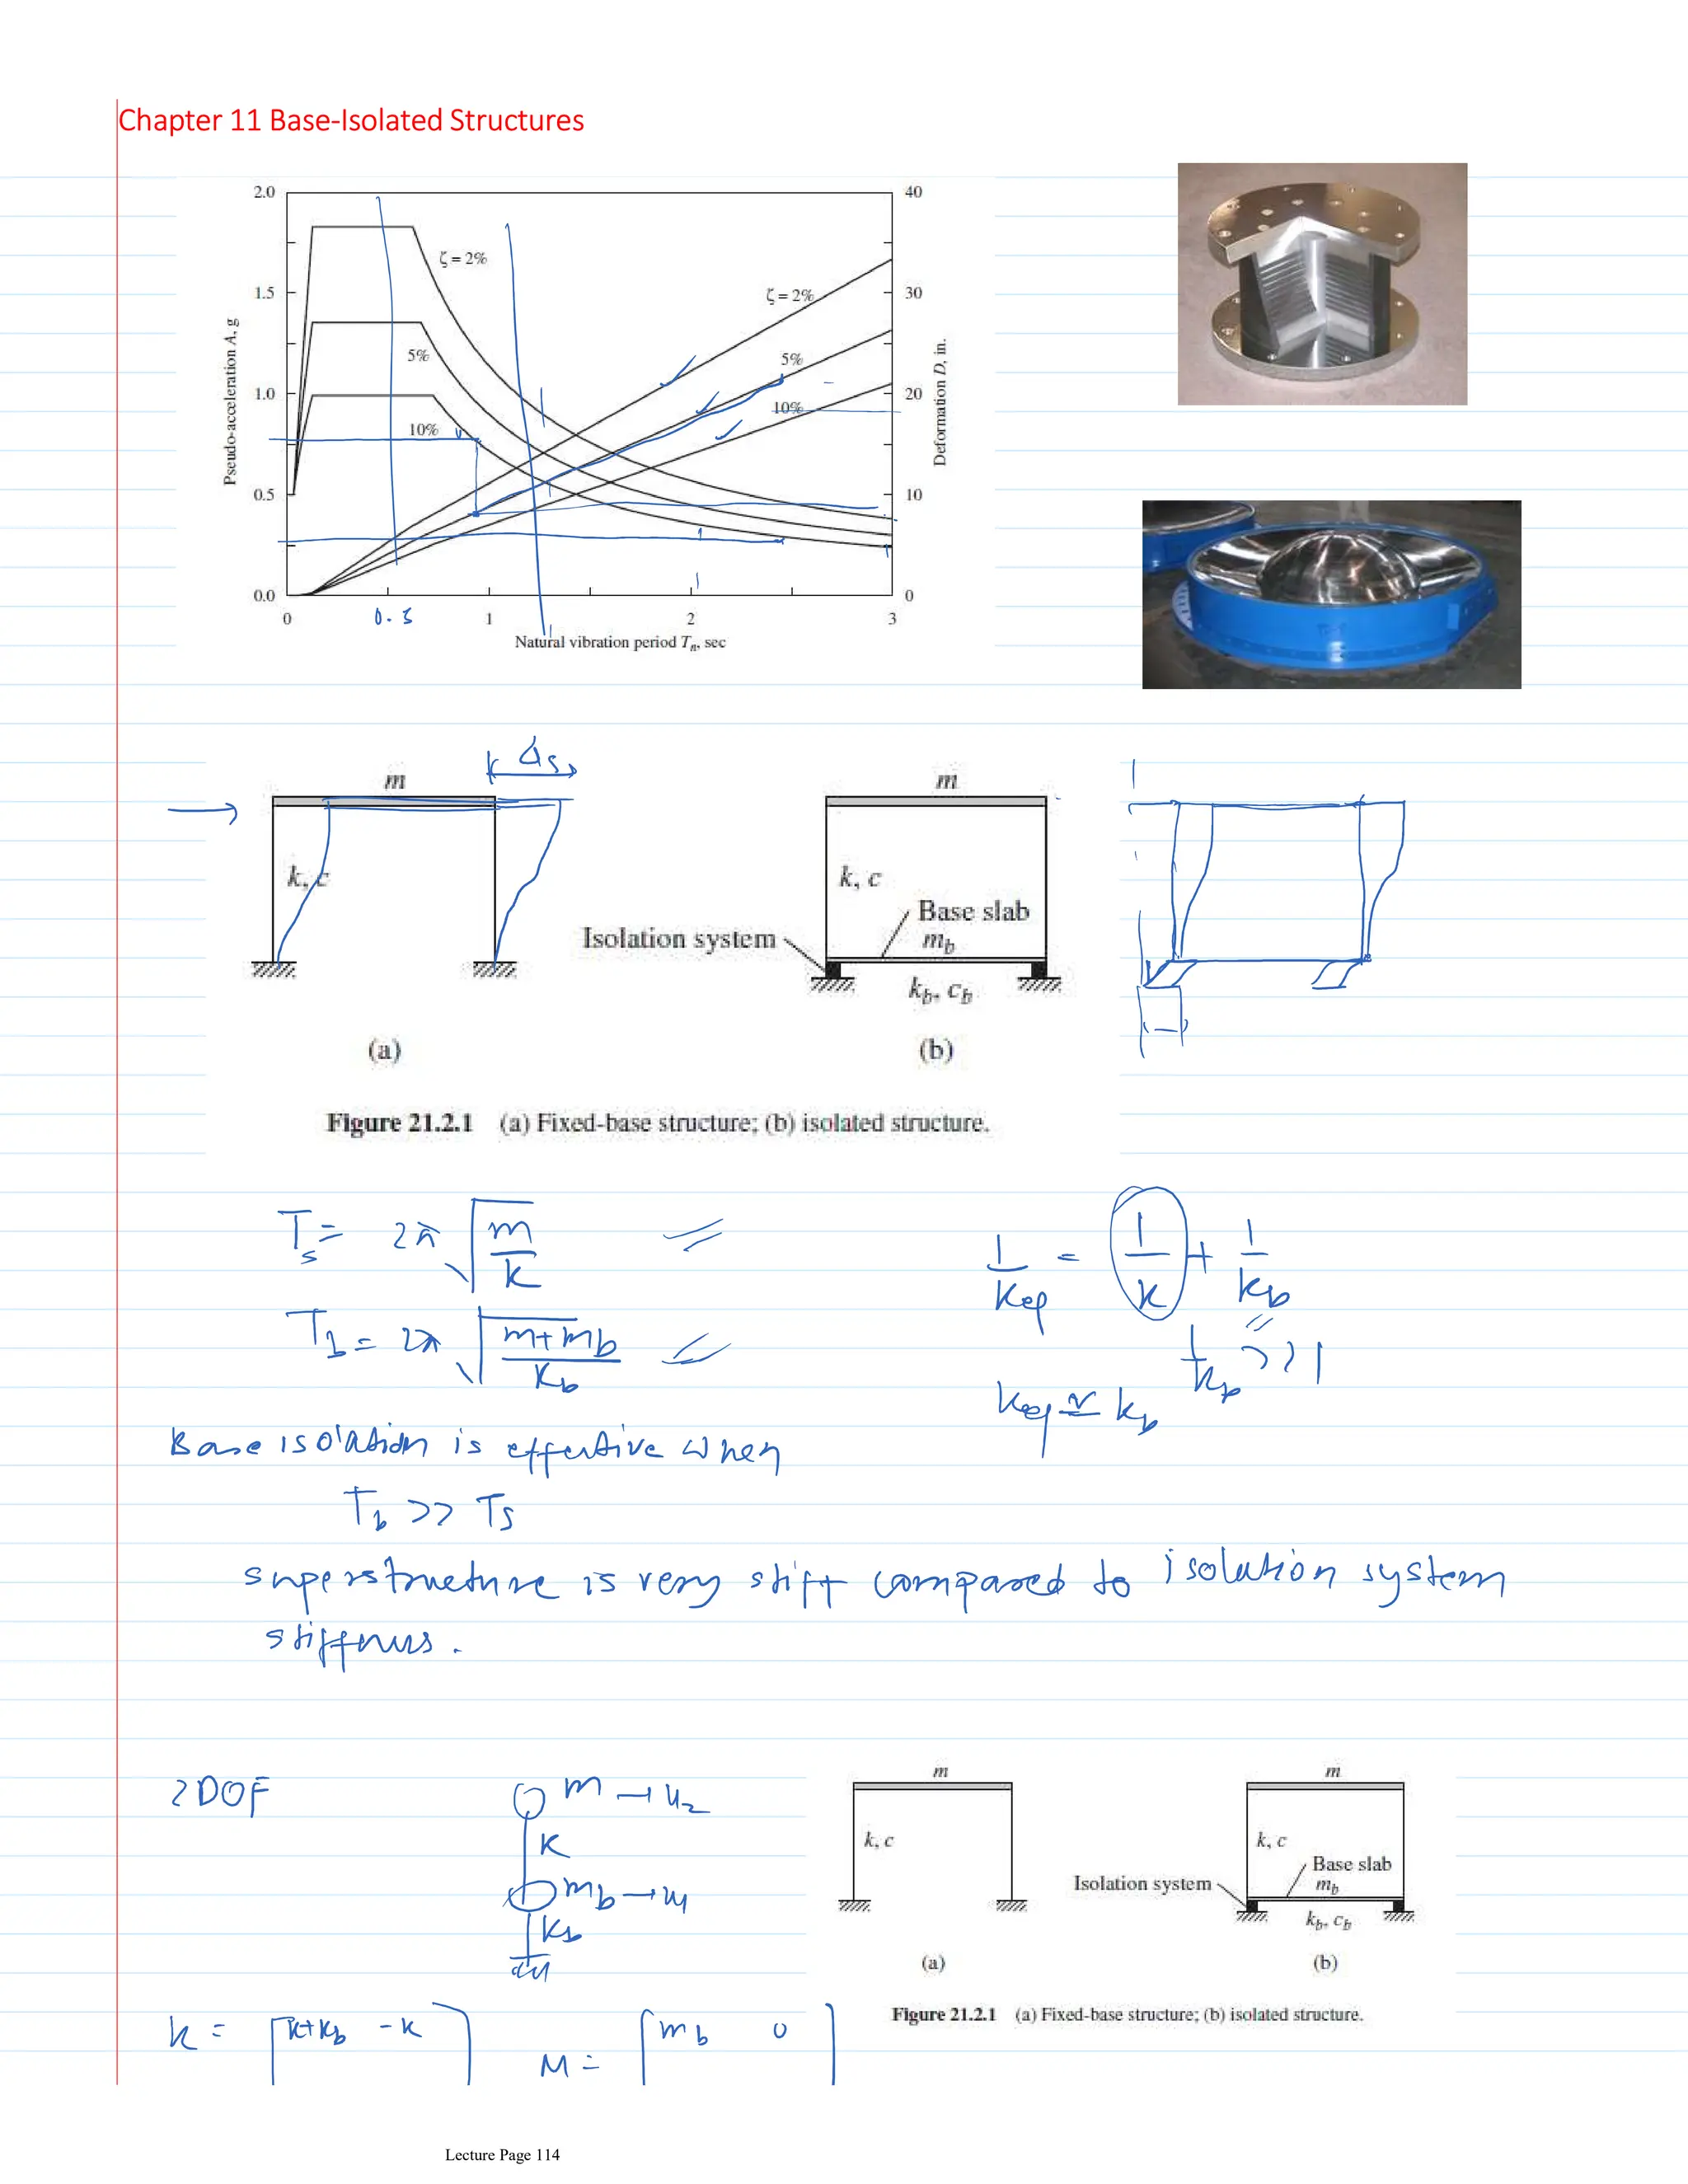 Chapter 11 Base-Isolated Structures
2.0
1.5
1.0
0.5
0.0
Pseudo-acceleration A, g
40
30
20
10
0
Deformation D, in.
ζ = 2%
5%
10%
ζ = 2%
5%
10%
0 1 2 3
0.5
Natural vibration period Tn, sec
Δs
m
k, c
(a)
m
k, c
Base slab
mb
Isolation system
kb, cb
(b)
Figure 21.2.1 (a) Fixed-base structure; (b) isolated structure.
Ts = 2π √(m/k)
1/Keq = 1/k + 1/kb
Tb = 2π √((m+mb)/Kb)
1/kb >> 1
Keq ≃ kb
Base isolation is effective when
Tb >> Ts
superstructure is very stiff compared to isolation system
stiffness.
2DOF
m → u2
K
mb → u1
Kb
m
k, c
(a)
m
k, c
Base slab
mb
Isolation system
kb, cb
(b)
Figure 21.2.1 (a) Fixed-base structure; (b) isolated structure.
k = [k+kb -k]
M = [mb 0]
Lecture Page 114